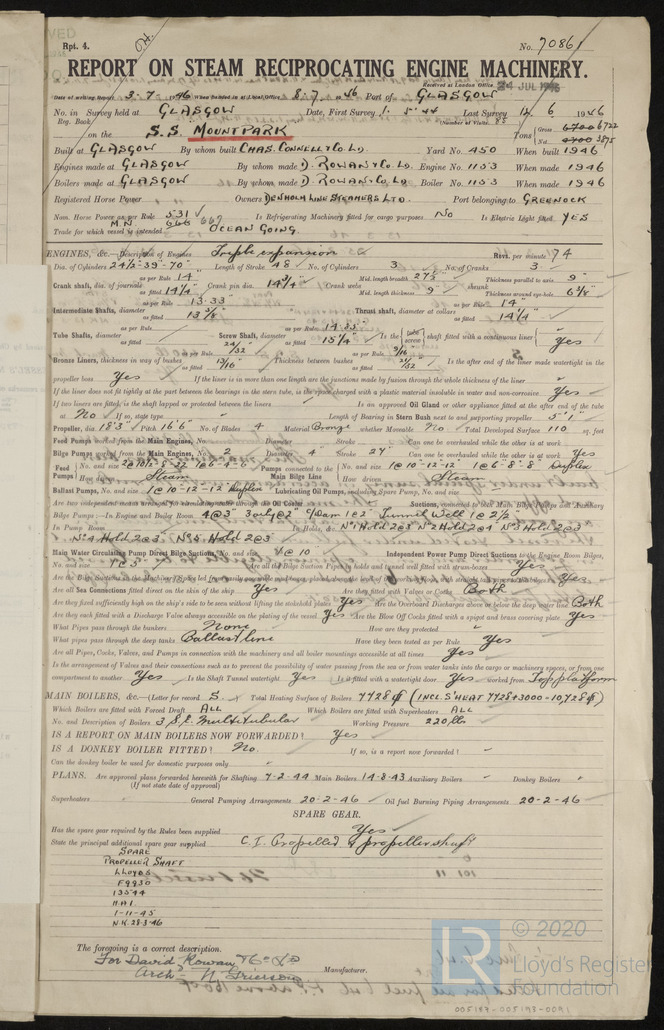 Rpt. 4.
No. 70861
REPORT ON STEAM RECIPROCATING ENGINE MACHINERY.
Received at London Office 24 JUL 1946
Date of writing Report 3-7-1946 When handed in at Local Office 8-7-46 Port of GLASGOW
No. in Survey held at GLASGOW Date, First Survey Last Survey 14. 6 1946
Reg. Book (Number of Visits 85
on the S.S. MOUNTPARK Tons Gross 6722
Net 3875
Built at GLASGOW By whom built CHAS. CONNELL & CO LD. Yard No. 450 When built 1946
Engines made at GLASGOW By whom made D. ROWAN & CO LD. Engine No. 1153 When made 1946
Boilers made at GLASGOW By whom made D. ROWAN & CO LD. Boiler No. 1153 When made 1946
Registered Horse Power Owners DENHOLM LINE STEAMERS LTD. Port belonging to GREENOCK
Nom. Horse Power as per Rule 531 Is Refrigerating Machinery fitted for cargo purposes NO Is Electric Light fitted YES
MN 666 667
Trade for which vessel is intended OCEAN GOING.
ENGINES, &c.—Description of Engines Triple expansion Revs. per minute 74
Dia. of Cylinders 24½-39-70" Length of Stroke 48 No. of Cylinders 3 No. of Cranks 3
Crank shaft, dia. of journals as per Rule 14" Crank pin dia. 14¾" Crank webs Mid. length breadth 27½" Thickness parallel to axis 9"
as fitted 14¼" Mid. length thickness 9" shrunk Thickness around eye-hole 6⅜"
Intermediate Shafts, diameter as per Rule 13.33 Thrust shaft, diameter at collars as per Rule 14"
as fitted 13⅜" as fitted 14¼"
Tube Shafts, diameter as per Rule Screw Shaft, diameter as per Rule as fitted 15¼" Is the tube screw shaft fitted with a continuous liner Yes
Bronze Liners, thickness in way of bushes Thickness between bushes Is the after end of the liner made watertight in the
propeller boss Yes If the liner is in more than one length are the junctions made by fusion through the whole thickness of the liner
If the liner does not fit tightly at the part between the bearings in the stern tube, is the space charged with a plastic material insoluble in water and non-corrosive Yes
If two liners are fitted, is the shaft lapped or protected between the liners Is an approved Oil Gland or other appliance fitted at the after end of the tube
shaft No If so, state type Length of Bearing in Stern Bush next to and supporting propeller 5'-1"
Propeller, dia 18'3" Pitch 16'6" No. of Blades 4 Material Bronze whether Moveable No Total Developed Surface 110 sq. feet
Feed Pumps worked from the Main Engines, No. Diameter Stroke Can one be overhauled while the other is at work
Bilge Pumps worked from the Main Engines, No. 2 Diameter 4" Stroke 27" Can one be overhauled while the other is at work Yes
Feed Pumps No. and size Pumps connected to the Main Bilge Line No. and size 1@10-12-12 1@6-8-8 Duplex
How driven Steam How driven Steam
Ballast Pumps, No. and size 1@10-12-12 Duplex Lubricating Oil Pumps, including Spare Pump, No. and size
Are two independent means arranged for circulating water through the Oil Cooler Suctions, connected to both Main Bilge Pumps and Auxiliary
Bilge Pumps:—In Engine and Boiler Room 4@3" Tunnel Well 1@2½
In Pump Room In Holds, &c. No 1 Hold 2@3 No 2 Hold 2@4 No 3 Hold 2@3
No 4 Hold 2@3 No 5 Hold 2@3
Main Water Circulating Pump Direct Bilge Suctions, No. and size 1@10 Independent Power Pump Direct Suctions to the Engine Room Bilges,
No. and size 1@5 Are all the Bilge Suction Pipes in holds and tunnel well fitted with strum-boxes Yes
Yes
Are all Sea Connections fitted direct on the skin of the ship Yes Are they fitted with Valves or Cocks Both
Are they fixed sufficiently high on the ship's side to be seen without lifting the stokehold plates Yes Are the Overboard Discharges above or below the deep water line Both
Are they each fitted with a Discharge Valve always accessible on the plating of the vessel Yes Are the Blow Off Cocks fitted with a spigot and brass covering plate Yes
What Pipes pass through the bunkers None How are they protected
What pipes pass through the deep tanks Ballast line Have they been tested as per Rule Yes
Are all Pipes, Cocks, Valves, and Pumps in connection with the machinery and all boiler mountings accessible at all times Yes
Is the arrangement of Valves and their connections such as to prevent the possibility of water passing from the sea or from water tanks into the cargo or machinery spaces, or from one
compartment to another Yes Is the Shaft Tunnel watertight Yes Is it fitted with a watertight door Yes worked from Top platform
MAIN BOILERS, &c.—(Letter for record S. Total Heating Surface of Boilers 7728 ϕ (INCL. S'HEAT 7728+3000=10,728 ϕ)
Which Boilers are fitted with Forced Draft ALL Which Boilers are fitted with Superheaters ALL
No. and Description of Boilers 3 S.E. Multitubular Working Pressure 220 lbs
IS A REPORT ON MAIN BOILERS NOW FORWARDED? Yes
IS A DONKEY BOILER FITTED? No. If so, is a report now forwarded?
Can the donkey boiler be used for domestic purposes only
PLANS. Are approved plans forwarded herewith for Shafting 7-2-44 Main Boilers 14-8-43 Auxiliary Boilers Donkey Boilers
(If not state date of approval)
Superheaters General Pumping Arrangements 20-2-46 Oil fuel Burning Piping Arrangements 20-2-46
SPARE GEAR.
Has the spare gear required by the Rules been supplied Yes
State the principal additional spare gear supplied C.I. Propeller & propeller shaft
SPARE
PROPELLER SHAFT
LLOYDS
F9930
13544
H.A.I.
1-11-45
N.K. 28-3-46
The foregoing is a correct description.
For David Rowan & Co Ld
Archd W Grierson Manufacturer.
© 2020
LR
Lloyd's Register
Foundation
005187-005198-0091